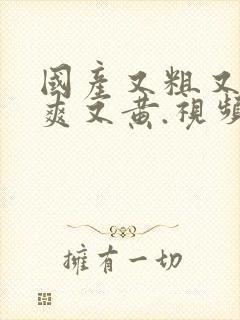 國產又粗又
爽又黄.視頻
擁有一切